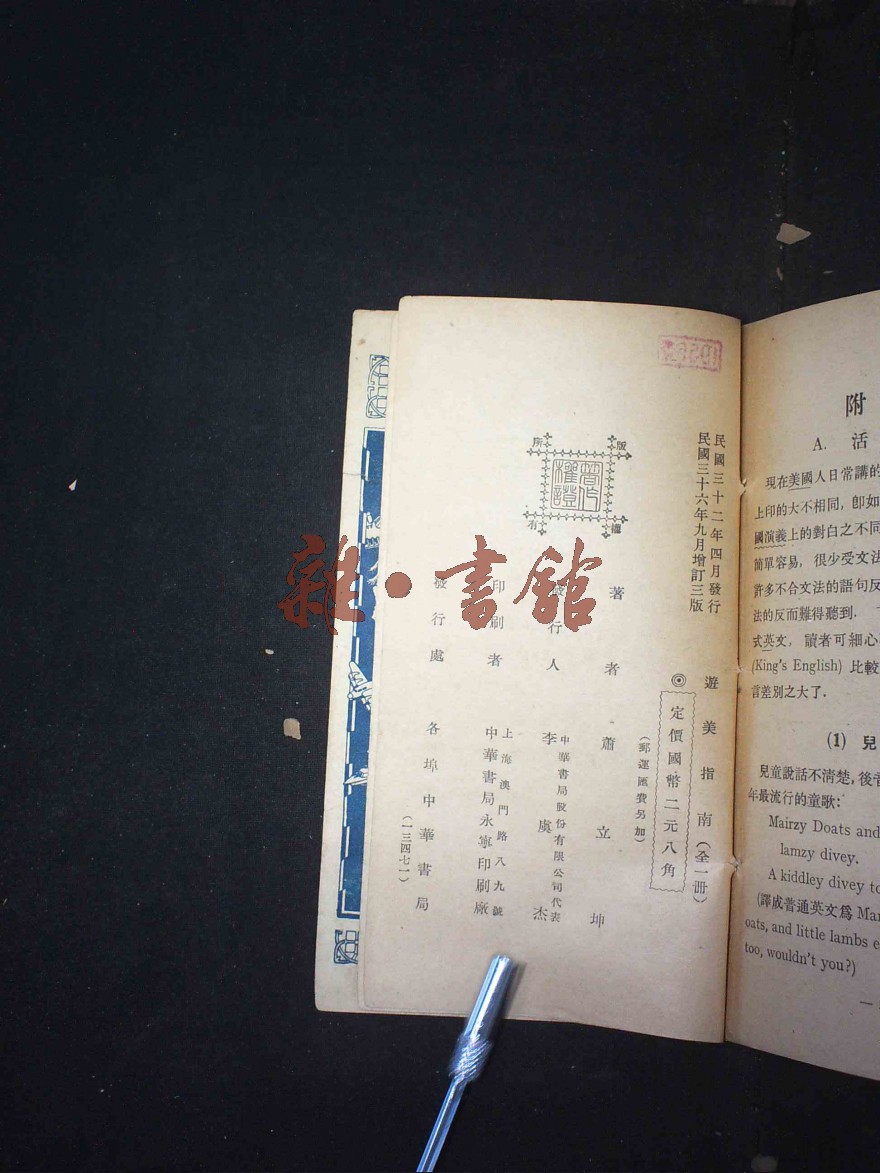 民國三十二年四月發行
民國三十六年九月增訂三版
遊美指南（全一册）
◎定價國幣二元八角
（郵運匯費另加）
著者 蕭立坤
發行人 李虞杰
中華書局股份有限公司代表
印刷者 中華書局永寧印刷廠
上海澳門路八九號
發行處 各埠中華書局
（一三四七一）
版權所有
雜·書館
附
A. 活
現在美國人日常講的
上印的大不相同，卽如
國演義上的對白之不同
簡單容易，很少受文法
許多不合文法的語句反
法的反而難得聽到．
式英文，讀者可細心
(King's English) 比較
言差別之大了．
(1) 兒
兒童說話不淸楚，後
年最流行的童歌：
Mairzy Doats and
lamzy divey.
A kiddley divey to
(譯成普通英文爲 Mar
oats, and little lambs e
too, wouldn't you?)
一